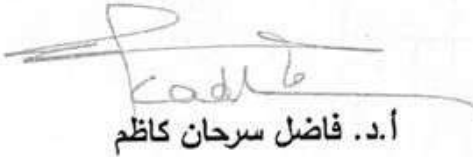 أ.د. فاضل سرحان كاظم